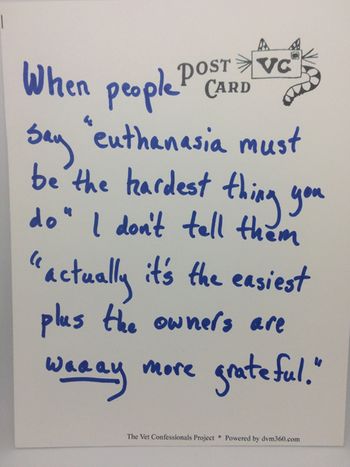 POST CARD VC
When people
say "euthanasia must
be the hardest thing you
do" I don't tell them
"actually it's the easiest
plus the owners are
waaay more grateful."
The Vet Confessionals Project * Powered by dvm360.com